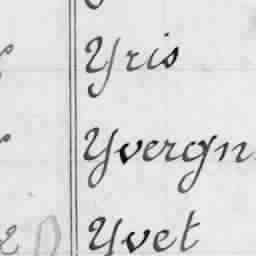 Yris
Yvergn
Yvet